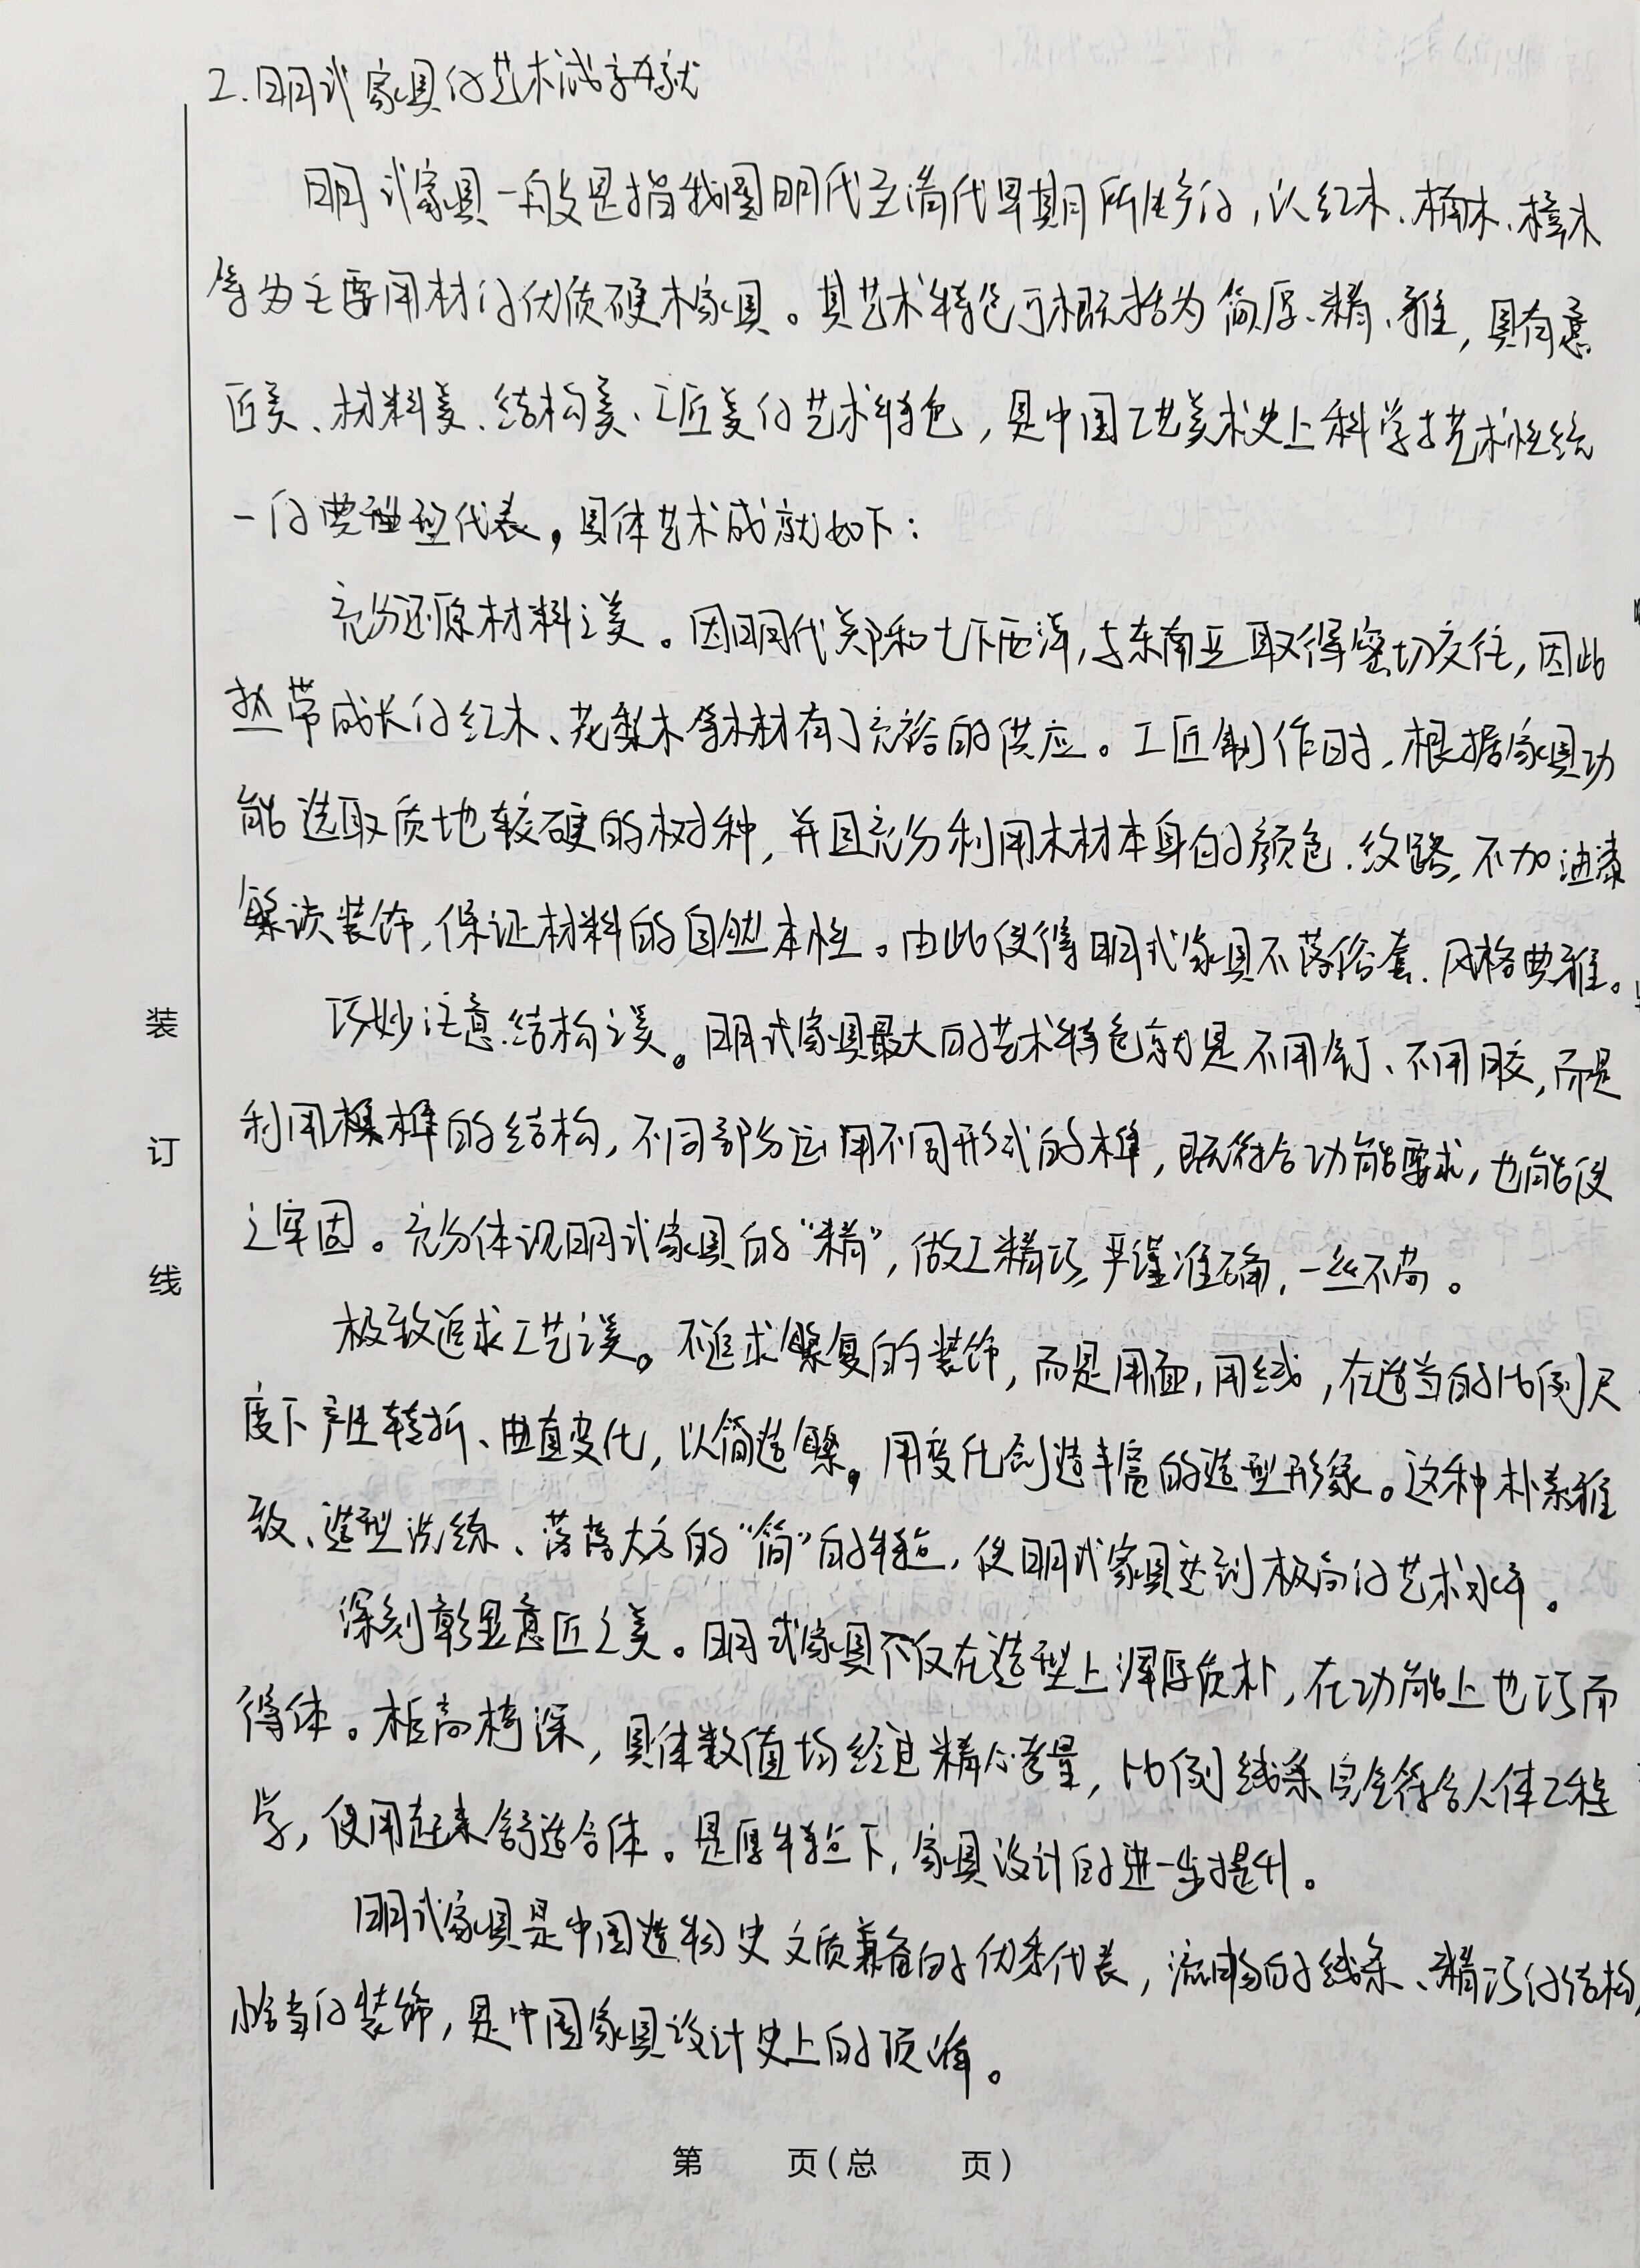 2.明式家具的艺术成就
明式家具一般是指我国明代至清代早期所生产的,以红木、楠木、樟木
等为主要用材的优质硬木家具。其艺术特色可概括为简、厚、精、雅,具有意
匠美、材料美、结构美、工匠美的艺术特色,是中国工艺美术史上科学与艺术性统
一的典型代表,具体艺术成就如下:
充分还原材料之美。因明代郑和七下西洋,与东南亚取得密切交往,因此
热带成长的红木、花梨木等木材有了充裕的供应。工匠制作时,根据家具功
能选取质地较硬的树种,并且充分利用木材本身的颜色、纹路,不加油漆
繁琐装饰,保证材料的自然本性。由此使得明式家具不落俗套、风格典雅。
巧妙注意结构之美。明式家具最大的艺术特色就是不用钉、不用胶,而是
利用榫的结构,不同部分运用不同形式的榫,既符合功能要求,也能使
之牢固。充分体现明式家具的“精”,做工精巧,严谨准确,一丝不苟。
极致追求工艺之美。不追求繁复的装饰,而是用面,用线,在适当的比例尺
度下产生转折、曲直变化,以简造繁,用变化创造丰富的造型形象。这种朴素雅
致、造型洗练、落落大方的“简”的特点,使明式家具达到极高的艺术水平。
深刻彰显意匠之美。明式家具不仅在造型上浑厚质朴,在功能上也巧而
得体。柜高椅深,具体数值均经过精心考量,比例线条完全符合人体工程
学,使用起来舒适合体。是厚特点下,家具设计的进一步提升。
明式家具是中国造物史文质兼备的优秀代表,流畅的线条、精巧的结构,
恰当的装饰,是中国家具设计史上的顶峰。
装
订
线
第 页(总 页)